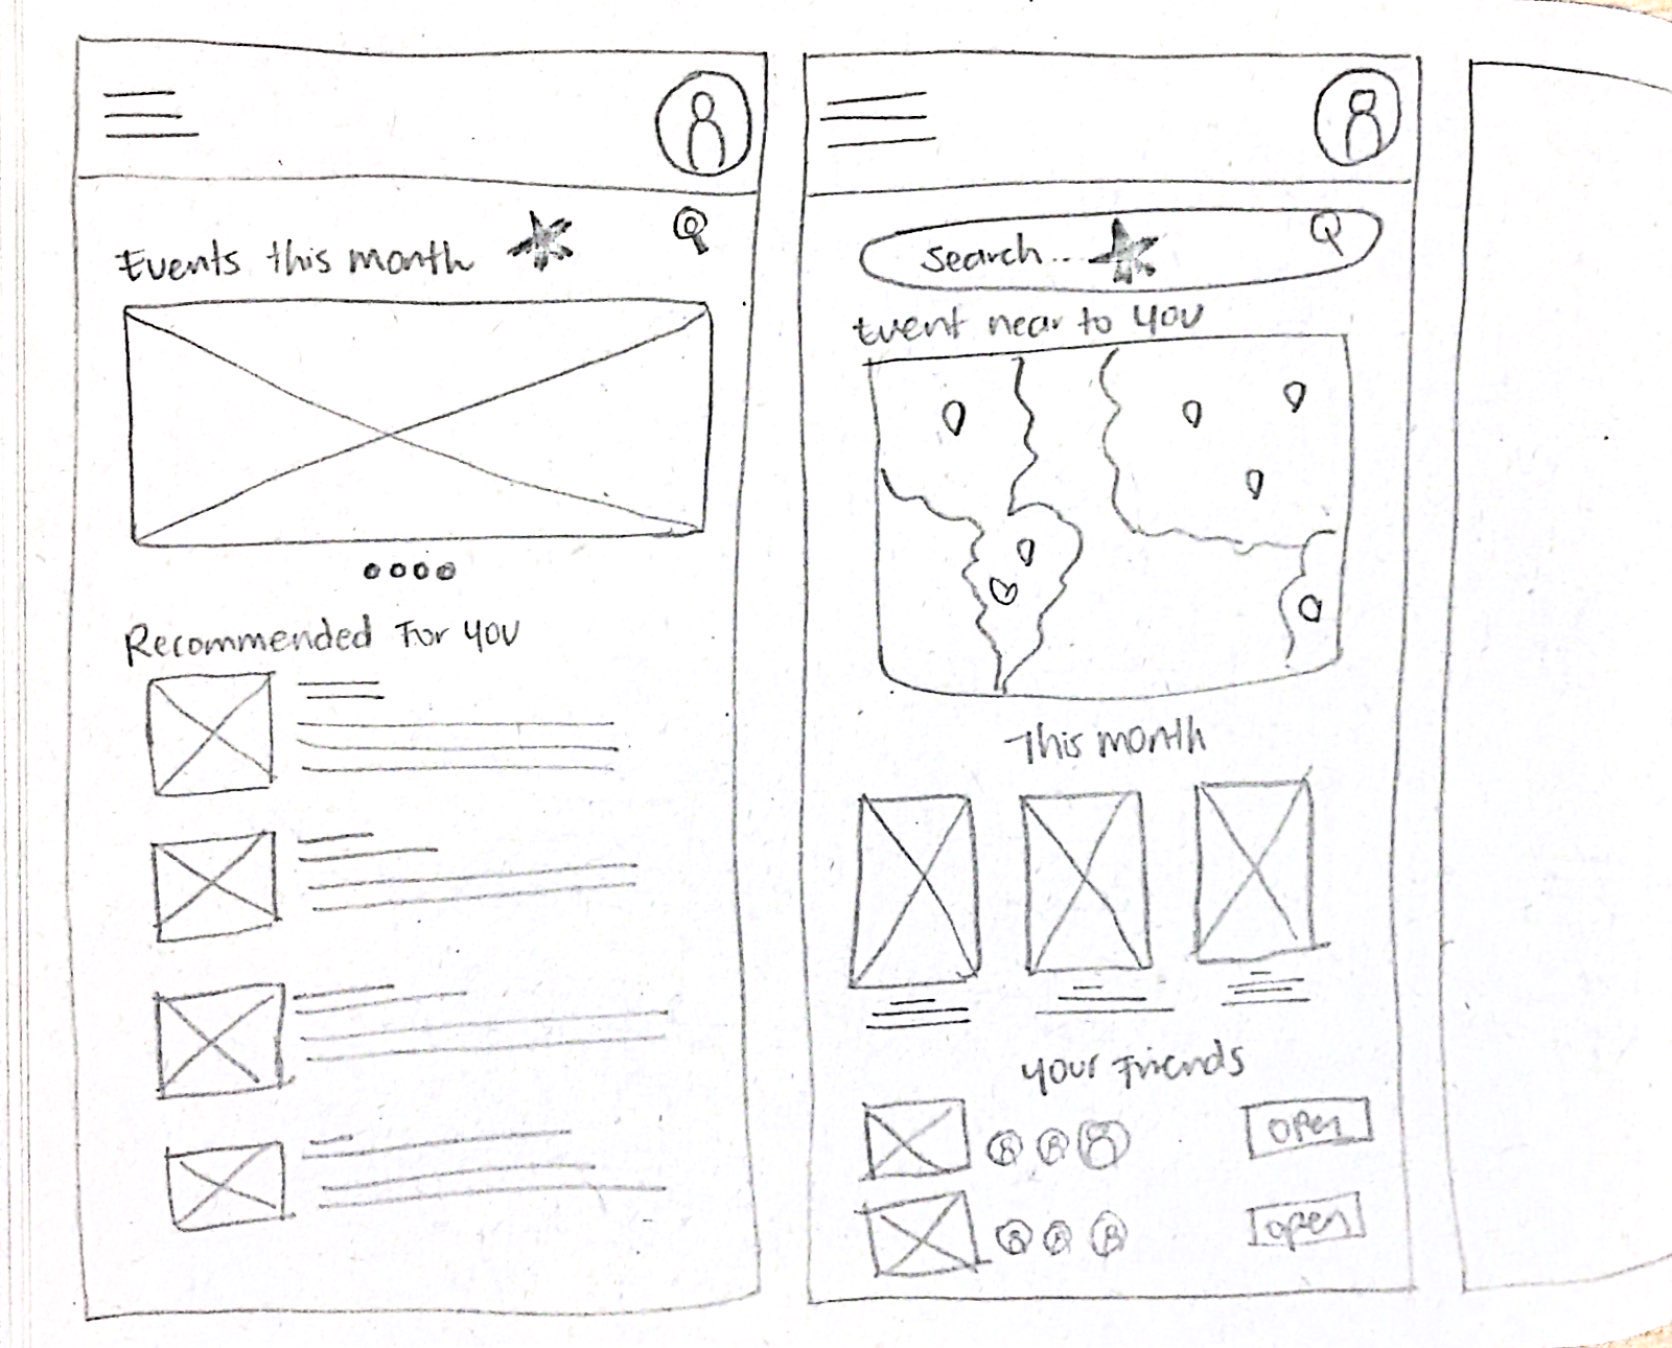 Events this month
Recommended For you
Search...
Event near to you
This month
your Friends
open
open